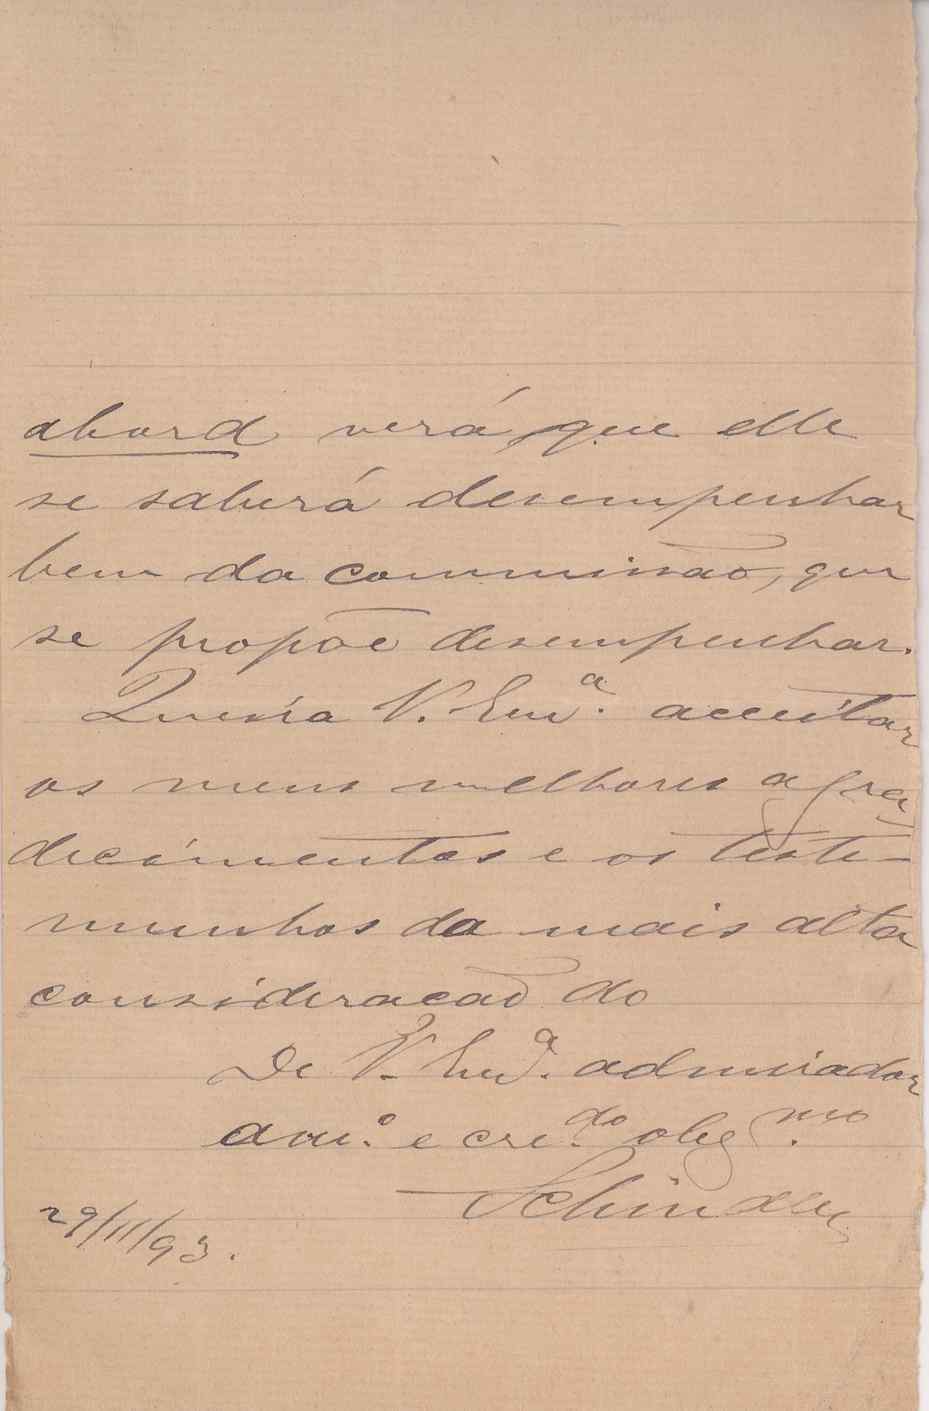 abord verá que elle
se saberá desempenhar
bem da commissão, que
se propõe desempenhar.
Queira V. Em.ª acceitar
os meus melhores agra-
decimentos e os teste-
munhos da mais alta
consideracão do
De V. Em.ª admirador
am.º e cre.do obg.mo
Schindler
29/11/93.